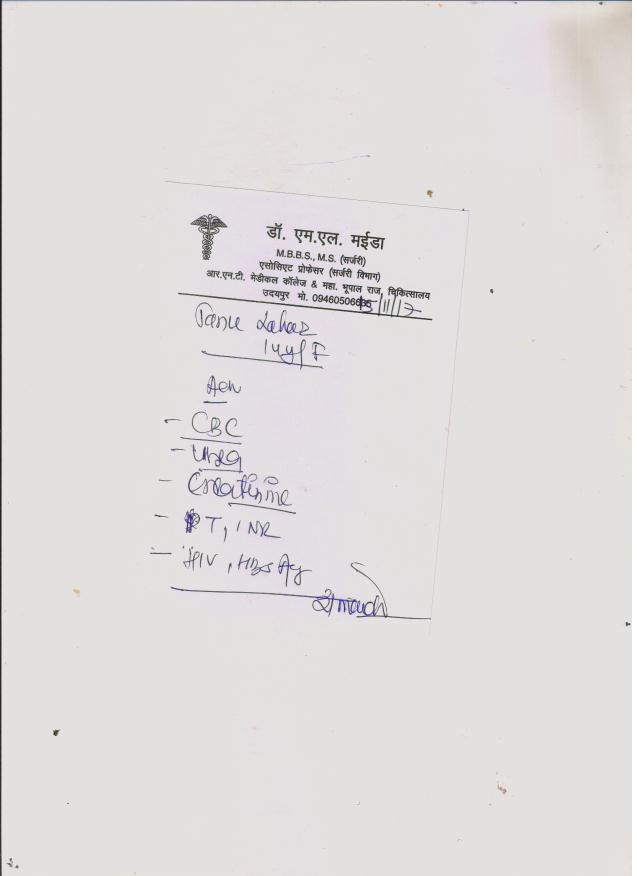 डॉ. एम.एल. मईडा
M.B.B.S., M.S. (सर्जरी)
एसोसिएट प्रोफेसर (सर्जरी विभाग)
आर.एन.टी. मेडीकल कॉलेज & महा. भूपाल राज. चिकित्सालय
उदयपुर मो. 09460506 15/11/17
14y/F
Adv
- CBC
- Urea
- Creatinine
- PT, INR
- HIV, HBsAg